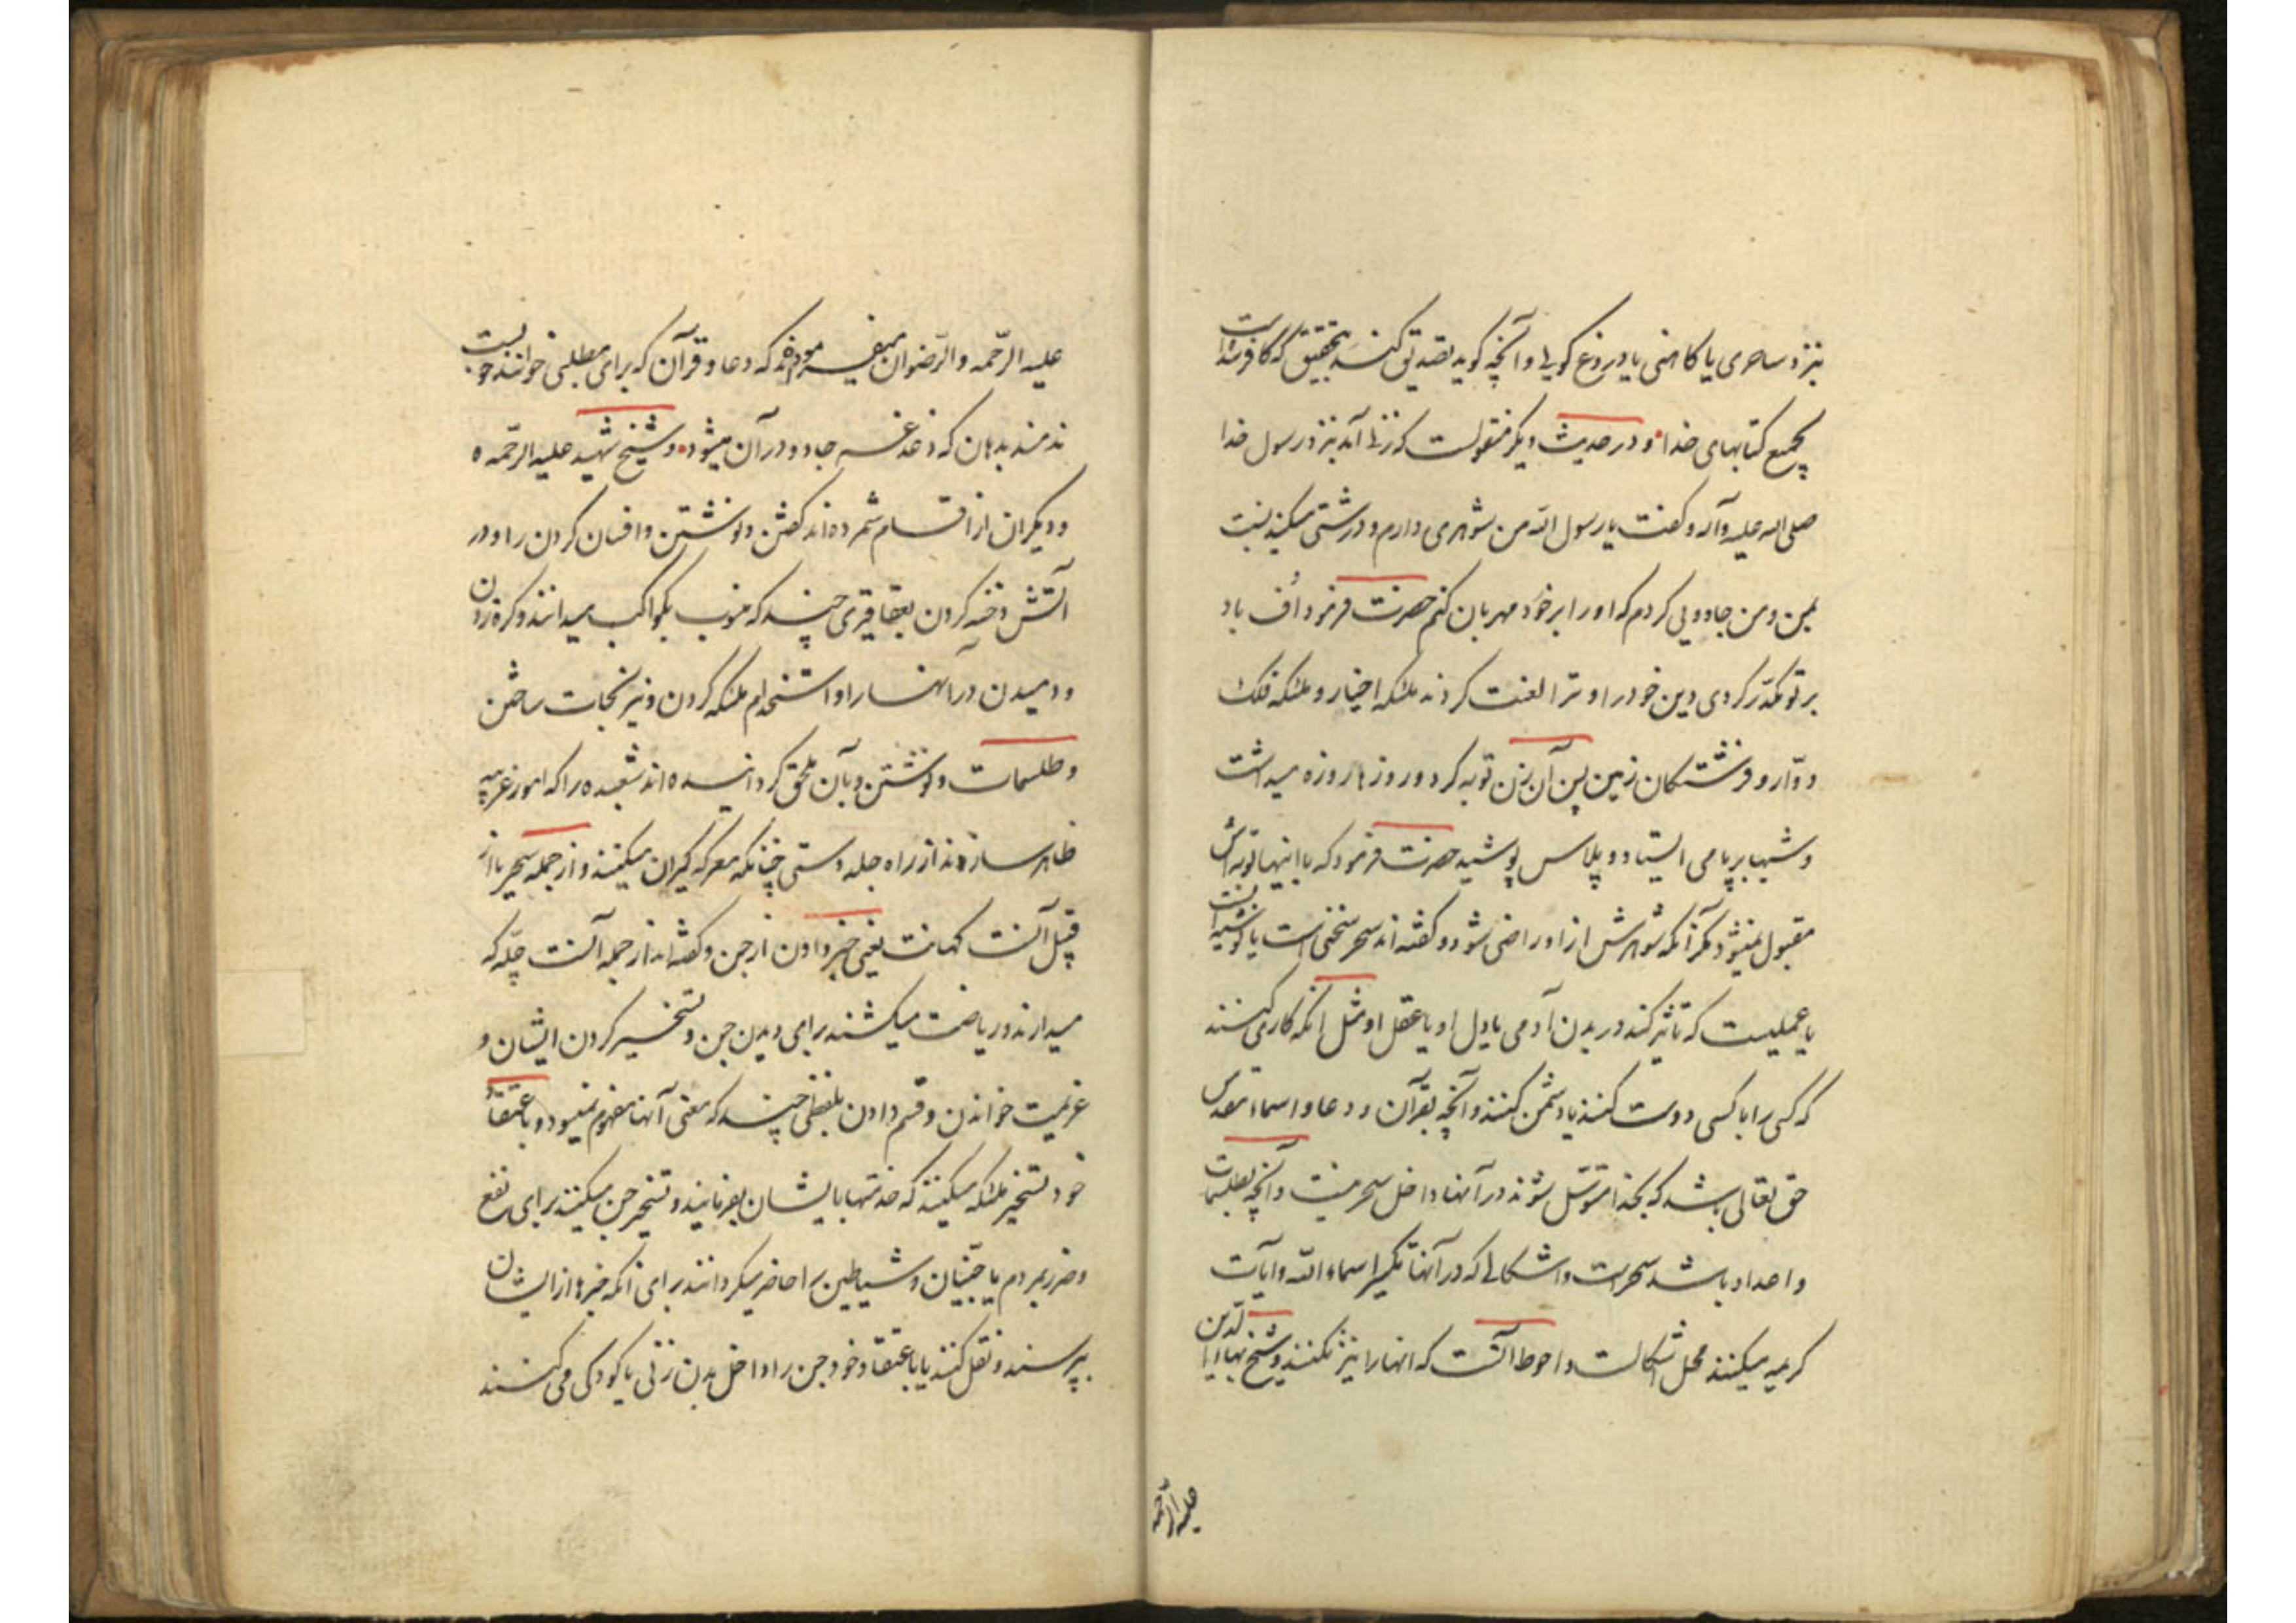 نزد ساحری یا کاهنی یا دروغ کویی و آنچه کوید تصدیق کند بتحقیق که کافر شده است
بجمیع کتابهای خدا و در حدیث دیکر منقولست که زنی آمد بنزد رسول خدا
صلی الله علیه وآله و کفت یا رسول الله من شوهری دارم و درشتی میکند نسبت
بمن و من جادویی کردم که او را بر خود مهربان کنم حضرت فرمود اُف باد
بر تو مکدّر کردی دین خود را و ترا لعنت کردند ملئکه اخیار و ملئکه فلک
دوّار و فرشتکان زمین پس آن زن توبه کرد و روزها روزه میداشت
و شبها بر پا می ایستاد و پلاس پوشید حضرت فرمود که با اینها توبه اش
مقبول نمیشود مکر آنکه شوهرش از او راضی شود و کفته اند سحر سخنی است یا نوشته ایست
یا عملیست که تاثیر کند در بدن آدمی یا دل او یا عقل او مثل آنکه کاری کنند
که کسی را با کسی دوست کنند یا دشمن کنند و آنچه بقرآن و دعا و اسماء مقدس
حق تعالی باشد که بخدا متوسّل شوند در آنها داخل سحر نیست و آنچه بطلسمات
و اعداد باشد سحر است و اشکالی که در آنها تکسیر اسماء الله و آیات
کریمه میکنند محل اشکالست و احوط آنست که آنها را نیز نکنند و شیخ بهاء الدّین
علیه الرّحمه
علیه الرّحمه والرّضوان میفرموده که دعا و قرآن که برای مطلبی خوانند خوب نیست
دمند بدهان که دغدغه جادو در آن میشود و شیخ شهید علیه الرّحمه
و دیکران از اقسام سحر شمرده اند کفتن و نوشتن و افسان کردن را و در
آتش دخنه کردن بعقاقیری چند که منسوب بکواکب میدانند و کره زدن
و دمیدن در آنها را و استخدام ملئکه کردن و نیرنجات ساختن
و طلسمات و نوشتن و بآن ملحق کردانیده اند شعبده را که امور غریبه
ظاهر سازند از راه جلد دستی چنانکه معرکه کیران میکنند و از جمله سحر یا از
قبیل آنست کهانت یعنی خبر دادن از جن و کفته اند از جمله آنست چلّه که
میدارند و ریاضت میکشند برای دیدن جن و تسخیر کردن ایشان و
عزیمت خواندن و قسم دادن بلفظی چند که معنی آنها مفهوم نمیشود و باعتقاد
خود تسخیر ملئکه میکنند که خدمتها بایشان بفرمایند و تسخیر جن میکنند برای نفع
و ضرر بمردم یا جنّیان و شیاطین را حاضر میکردانند برای آنکه خبرها از ایشان
بپرسند و نقل کنند یا باعتقاد خود جن را داخل بدن زنی یا کودکی می کنند